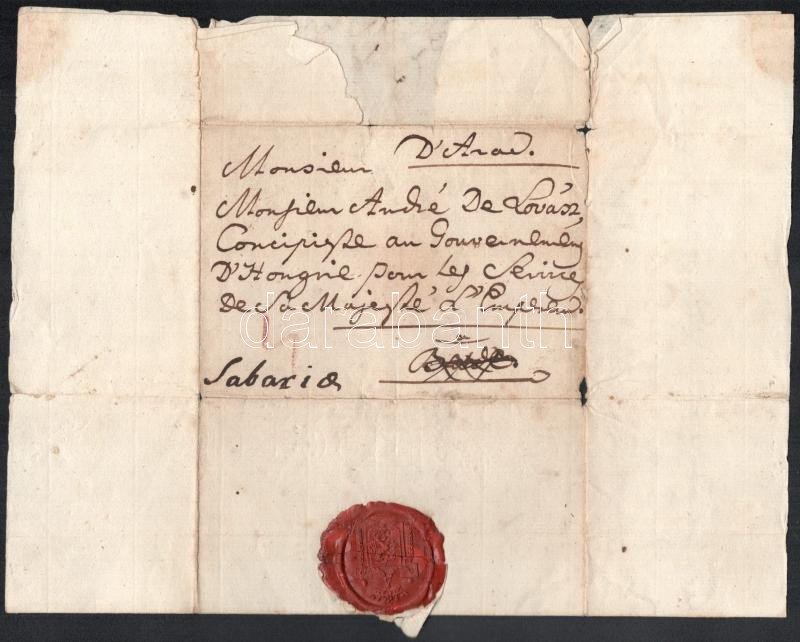 D'Arad.
Monsieur
Monsieur André De Lovász,
Concipiste au Gouvernement
D'Hongrie pour les Service
De Sa Majesté L'Empereur.
a
Bude.
Sabariæ
darabanth